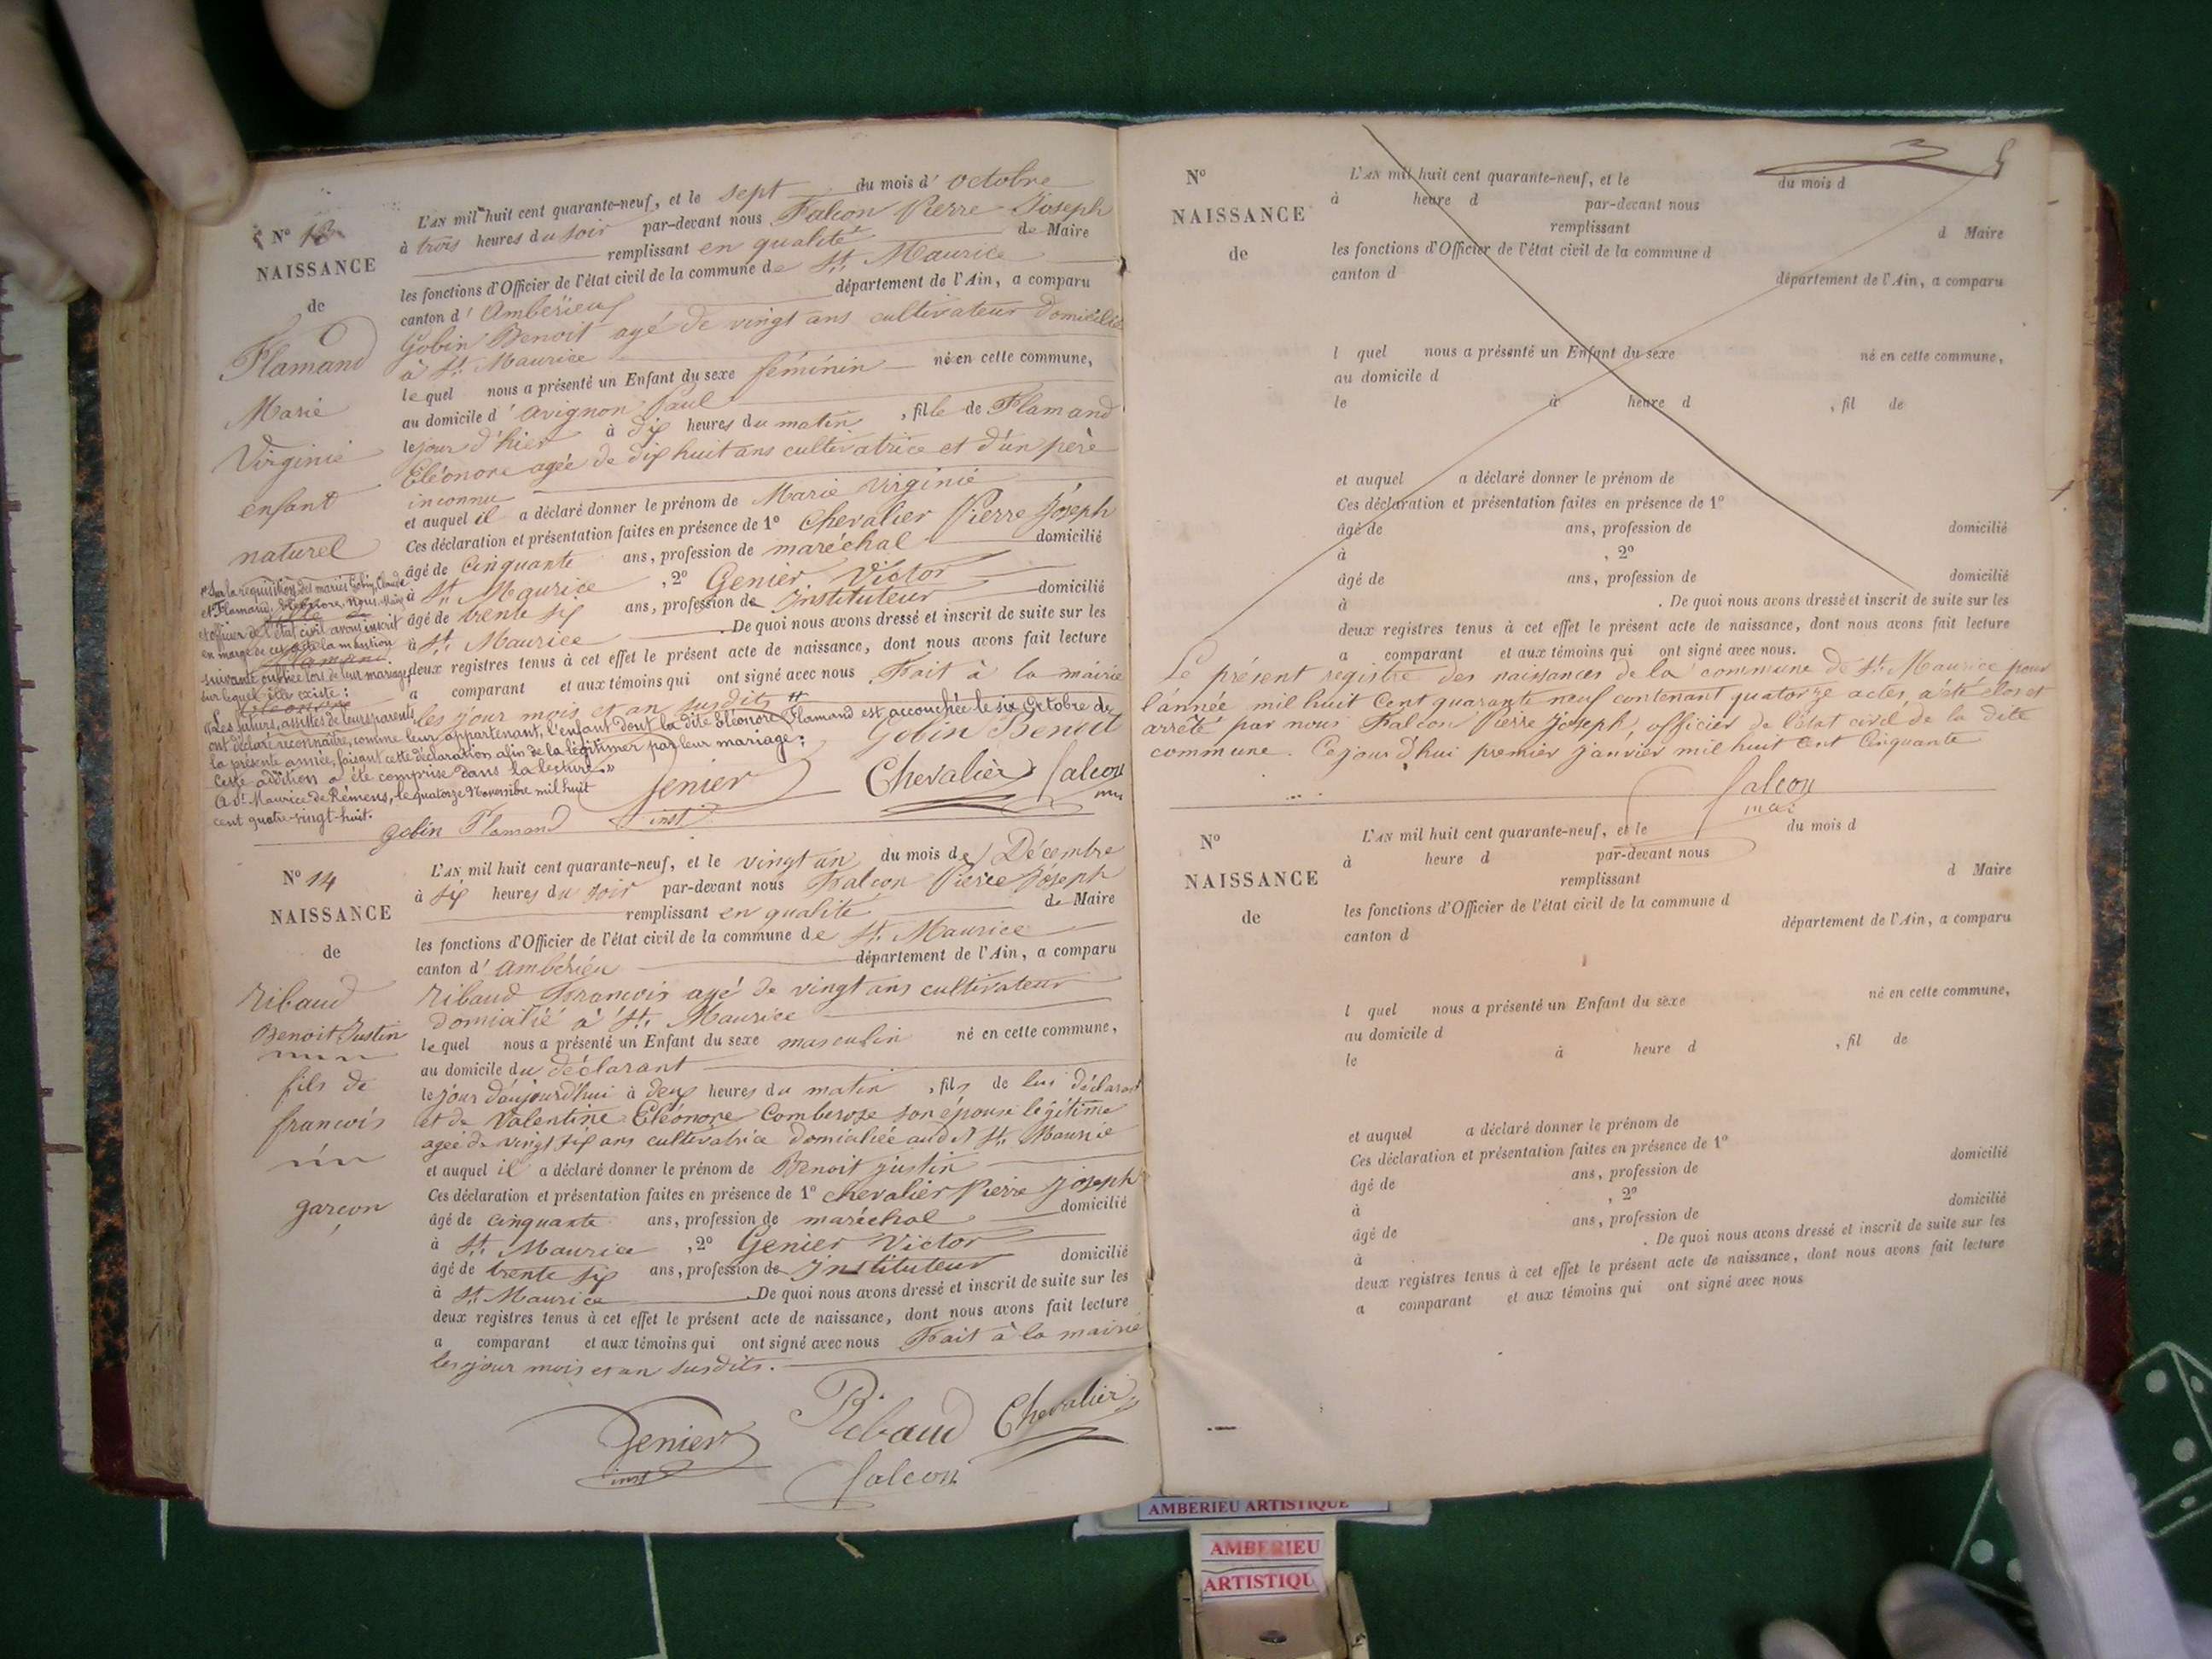 N° 13
NAISSANCE
de
Flamand
Marie
Virginie
enfant
naturel
L'AN mil huit cent quarante-neuf, et le sept du mois d'octobre
à trois heures du soir par-devant nous Falcon Pierre Joseph
remplissant en qualité de Maire
les fonctions d'Officier de l'état civil de la commune de St. Maurice
canton d'Ambérieux département de l'Ain, a comparu
Gobin Benoit agé de vingt ans cultivateur domicilié
à St. Maurice
lequel nous a présenté un Enfant du sexe féminin né en cette commune,
au domicile d'avignon Paul
le jour d'hier à dix heures du matin, fille de Flamand
Eléonore agée de dix huit ans cultivatrice et d'un père
inconnu
et auquel il a déclaré donner le prénom de Marie Virginie
Ces déclaration et présentation faites en présence de 1° Chevalier Pierre Joseph
âgé de cinquante ans, profession de maréchal domicilié
à St. Maurice, 2° Genier Victor
âgé de trente six ans, profession de Instituteur domicilié
à St. Maurice. De quoi nous avons dressé et inscrit de suite sur les
deux registres tenus à cet effet le présent acte de naissance, dont nous avons fait lecture
a comparant et aux témoins qui ont signé avec nous Fait à la mairie
les jour mois et an susdits
Sur la réquisition des mariés Gobin, Claude
et Flamand, Eléonore, Nous, Maire
et officier de l'état civil avons inscrit
en marge de cet acte la mention
suivante insérée lors de leur mariage
sur lequel elle existe :
"Les futurs, assistés de leurs parents
ont déclaré reconnaître, comme leur appartenant, l'enfant dont la dite Eléonore Flamand est accouchée le six Octobre de
la présente année, faisant cette déclaration afin de la légitimer par leur mariage;
cette addition a été comprise dans la lecture."
A St. Maurice de Rémens, le quatorze Novembre mil huit
cent quatre-vingt-huit.
Gobin Benoit
Genier
inst
Chevalier Falcon
gobin Flamand
N° 14
NAISSANCE
de
Ribaud
Benoit Justin
fils de
francois
garcon
L'AN mil huit cent quarante-neuf, et le vingt un du mois de Décembre
à six heures du soir par-devant nous Falcon Pierre Joseph
remplissant en qualité de Maire
les fonctions d'Officier de l'état civil de la commune de St. Maurice
canton d'ambérieu département de l'Ain, a comparu
Ribaud Francois agé de vingt ans cultivateur
domicilié à St. Maurice
lequel nous a présenté un Enfant du sexe masculin né en cette commune,
au domicile du déclarant
le jour d'aujourd'hui à deux heures du matin, fils de lui déclarant
et de Valentine Eléonore Comberoze son épouse légitime
agée de vingt six ans cultivatrice domiciliée audit St. Maurice
et auquel il a déclaré donner le prénom de Benoit Justin
Ces déclaration et présentation faites en présence de 1° Chevalier Pierre Joseph
âgé de cinquante ans, profession de maréchal domicilié
à St. Maurice, 2° Genier Victor
âgé de trente six ans, profession de Instituteur domicilié
à St. Maurice. De quoi nous avons dressé et inscrit de suite sur les
deux registres tenus à cet effet le présent acte de naissance, dont nous avons fait lecture
a comparant et aux témoins qui ont signé avec nous Fait à la mairie
les jour mois et an susdits.
Genier
inst
Ribaud Chevalier
falcon
N°
NAISSANCE
de
L'AN mil huit cent quarante-neuf, et le du mois d
à heure d par-devant nous
remplissant d Maire
les fonctions d'Officier de l'état civil de la commune d
canton d département de l'Ain, a comparu
l quel nous a présenté un Enfant du sexe né en cette commune,
au domicile d
le à heure d , fil de
et auquel a déclaré donner le prénom de
Ces déclaration et présentation faites en présence de 1°
âgé de ans, profession de domicilié
à , 2°
âgé de ans, profession de domicilié
à . De quoi nous avons dressé et inscrit de suite sur les
deux registres tenus à cet effet le présent acte de naissance, dont nous avons fait lecture
a comparant et aux témoins qui ont signé avec nous.
Le présent registre des naissances de la commune de St. Maurice pour
l'année mil huit cent quarante neuf contenant quatorze actes, a été clos et
arrêté par nous Falcon Pierre Joseph, officier de l'état civil de la dite
commune. Ce jour d'hui premier janvier mil huit cent cinquante
falcon
N°
NAISSANCE
de
L'AN mil huit cent quarante-neuf, et le du mois d
à heure d par-devant nous
remplissant d Maire
les fonctions d'Officier de l'état civil de la commune d
canton d département de l'Ain, a comparu
l quel nous a présenté un Enfant du sexe né en cette commune,
au domicile d
le à heure d , fil de
et auquel a déclaré donner le prénom de
Ces déclaration et présentation faites en présence de 1°
âgé de ans, profession de domicilié
à , 2°
âgé de ans, profession de domicilié
à . De quoi nous avons dressé et inscrit de suite sur les
deux registres tenus à cet effet le présent acte de naissance, dont nous avons fait lecture
a comparant et aux témoins qui ont signé avec nous
AMBERIEU ARTISTIQUE
AMBERIEU
ARTISTIQU